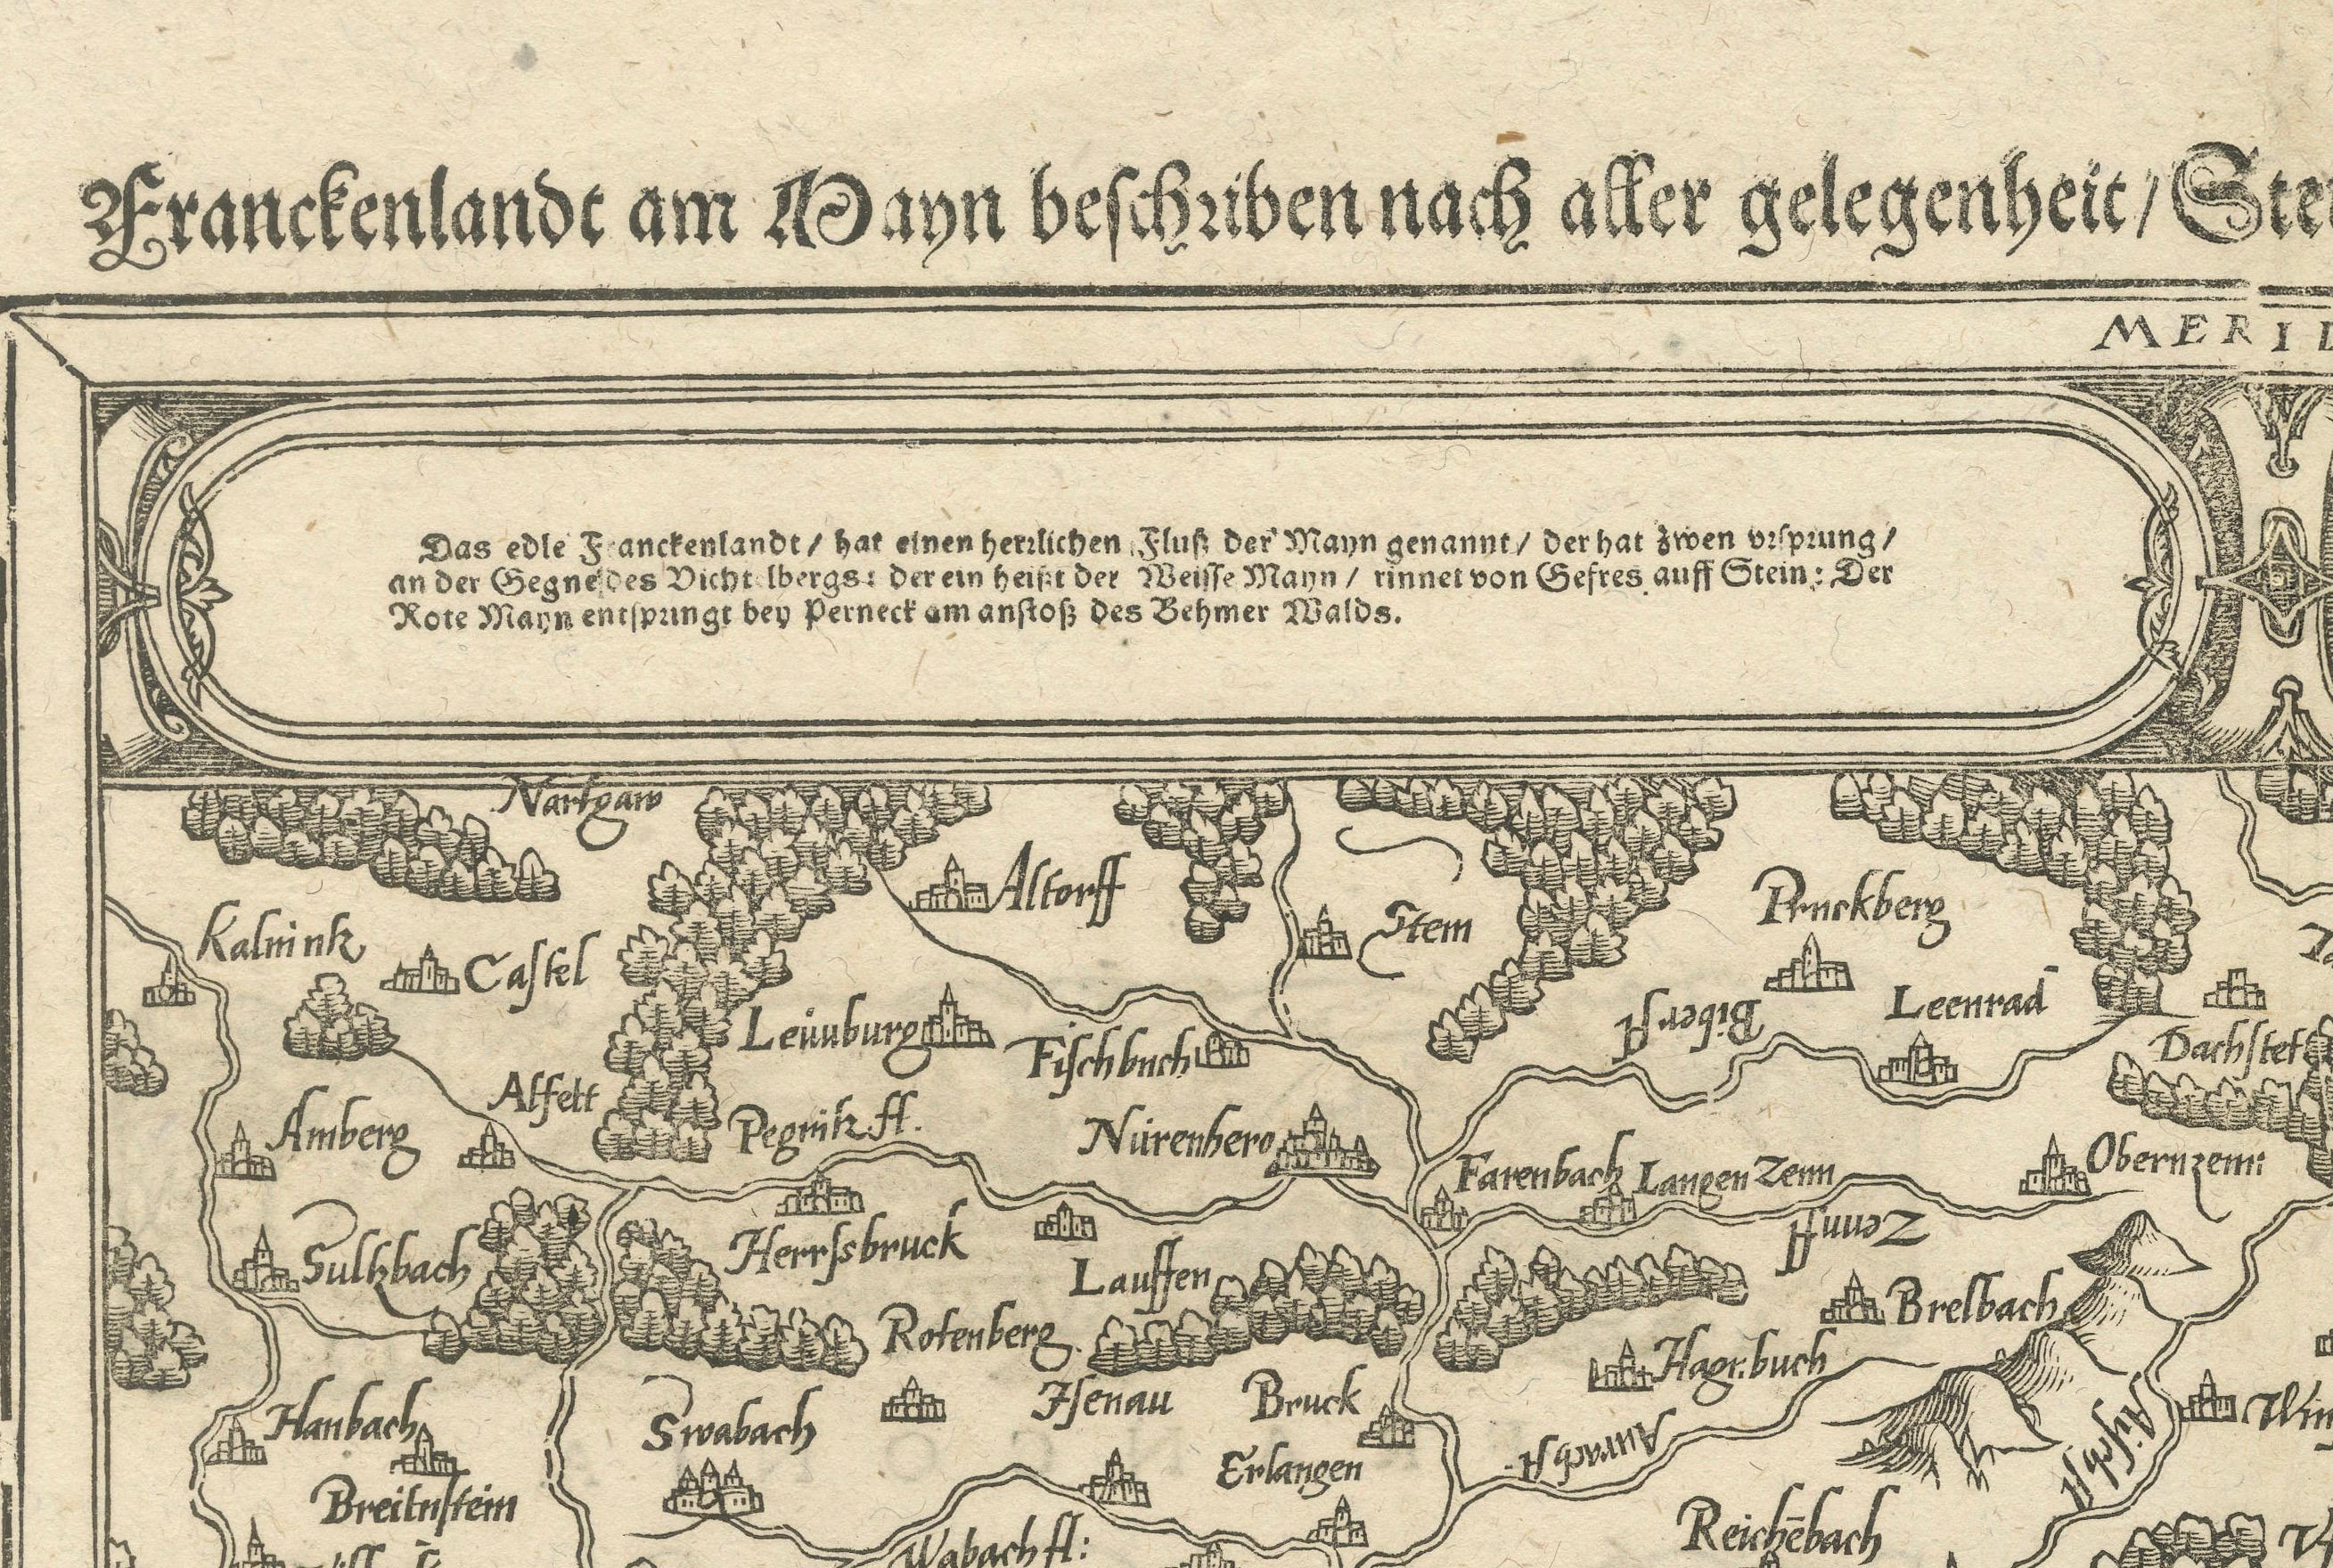 Franckenlandt am Mayn beschriben nach aller gelegenheit/
MERI
Das edle Franckenlandt/ hat einen herrlichen Fluß der Mayn genannt/ der hat zwen vrsprung/
an der Gegne des Vichtelbergs: der ein heißt der Weisse Mayn/ rinnet von Gefres auff Stein: Der
Rote Mayn entspringt bey Perneck am anstoß des Behmer Walds.
Nortgaw
Altorff
Stem
Pruckberg
Kalmink
Castel
Leüuburg
Fischbuch
Biber fl
Leenrad
Dachstet
Alfelt
Amberg
Pegnitz fl.
Nürenberg
Farenbach
Langen Zenn
Obernzenn
Zenn fl
Sultzbach
Herrssbruck
Lauffen
Brelbach
Rotenberg
Hagr.buch
Hanbach
Swabach
Isenau
Bruck
Aurach fl
Aisch fl
Erlangen
Breitnstein
Reichēbach
Wabach fl: